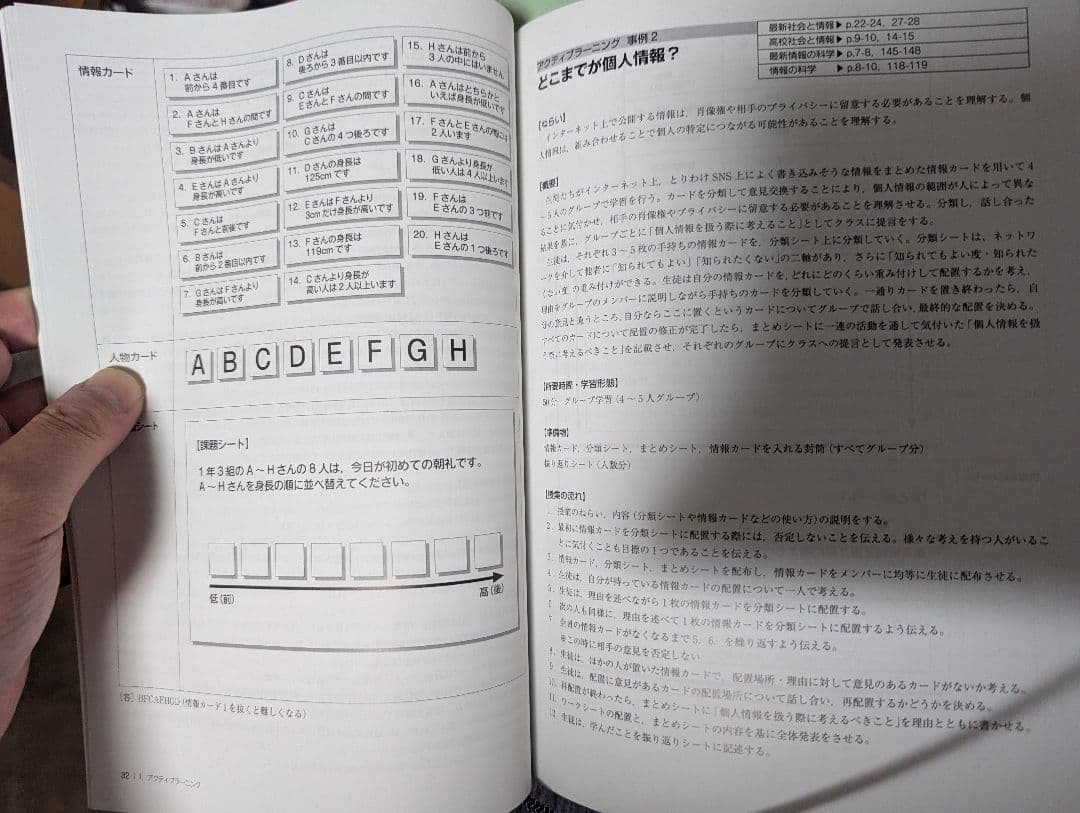 情報カード
1. Aさんは
前から4番目です
2. Aさんは
FさんとHさんの間です
3. BさんはAさんより
身長が低いです
4. EさんはAさんより
身長が高いです
5. Cさんは
Fさんと前後です
6. Bさんは
前から2番目以内です
7. GさんはFさんより
身長が高いです
8. Dさんは
後ろから3番目以内です
9. Cさんは
EさんとFさんの間です
10. Gさんは
Cさんの4つ後ろです
11. Dさんの身長は
125cmです
12. EさんはFさんより
3cmだけ身長が高いです
13. Fさんの身長は
119cmです
14. Cさんより身長が
高い人は2人以上います
15. Hさんは前から
3人の中にはいません
16. Aさんはどちらかと
いえば身長が低いです
17. FさんとEさんの間には
2人います
18. Gさんより身長が
低い人は4人以上います
19. Fさんは
Eさんの3つ前です
20. Hさんは
Eさんの1つ後ろです
人物カード
A B C D E F G H
シート
［課題シート］
1年3組のA～Hさんの8人は、今日が初めての朝礼です。
A～Hさんを身長の順に並べ替えてください。
低（前）
高（後）
［答］BFCAEHGD（情報カード1を抜くと難しくなる）
32 | 1. アクティブラーニング
アクティブラーニング 事例2
どこまでが個人情報？
最新社会と情報▶ p.22-24, 27-28
高校社会と情報▶ p.9-10, 14-15
最新情報の科学▶ p.7-8, 145-148
情報の科学 ▶ p.8-10, 118-119
［ねらい］
インターネット上で公開する情報は、肖像権や相手のプライバシーに留意する必要があることを理解する。個
人情報は、組み合わせることで個人の特定につながる可能性があることを理解する。
［概要］
生徒たちがインターネット上、とりわけSNS上によく書き込みそうな情報をまとめた情報カードを用いて4
～5人のグループで学習を行う。カードを分類して意見交換することにより、個人情報の範囲が人によって異な
ることに気付かせ、相手の肖像権やプライバシーに留意する必要があることを理解させる。分類し、話し合った
結果を基に、グループごとに「個人情報を扱う際に考えること」としてクラスに提言をする。
生徒は、それぞれ3～5枚の手持ちの情報カードを、分類シート上に分類していく。分類シートは、ネットワ
ークを介して他者に「知られてもよい」「知られたくない」の二軸があり、さらに「知られてもよい度・知られた
くない度」の重み付けができる。生徒は自分の情報カードを、どれにどのくらい重み付けして配置するかを考え、
理由をグループのメンバーに説明しながら手持ちのカードを分類していく。一通りカードを置き終わったら、自
分の意見と違うところ、自分ならここに置くというカードについてグループで話し合い、最終的な配置を決める。
すべてのカードについて配置の修正が完了したら、まとめシートに一連の活動を通して気付いた「個人情報を扱
う際に考えるべきこと」を記載させ、それぞれのグループにクラスへの提言として発表させる。
［所要時間・学習形態］
50分 グループ学習（4～5人グループ）
［準備物］
情報カード、分類シート、まとめシート、情報カードを入れる封筒（すべてグループ分）
振り返りシート（人数分）
［授業の流れ］
1. 授業のねらい、内容（分類シートや情報カードなどの使い方）の説明をする。
2. 最初に情報カードを分類シートに配置する際には、否定しないことを伝える。様々な考えを持つ人がいるこ
とに気付くことも目標の1つであることを伝える。
3. 情報カード、分類シート、まとめシートを配布し、情報カードをメンバーに均等に生徒に配布させる。
4. 生徒は、自分が持っている情報カードの配置について一人で考える。
5. 生徒は、理由を述べながら1枚の情報カードを分類シートに配置する。
6. 次の人も同様に、理由を述べて1枚の情報カードを分類シートに配置するよう伝える。
7. 全員の情報カードがなくなるまで5. 6. を繰り返すよう伝える。
※この時に相手の意見を否定しない
8. 生徒は、ほかの人が置いた情報カードで、配置場所・理由に対して意見のあるカードがないか考える。
9. 生徒は、配置に意見があるカードの配置場所について話し合い、再配置するかどうかを決める。
10. 再配置が終わったら、まとめシートに「個人情報を扱う際に考えるべきこと」を理由とともに書かせる。
11. ワークシートの配置と、まとめシートの内容を基に全体発表をさせる。
12. 生徒は、学んだことを振り返りシートに記述する。